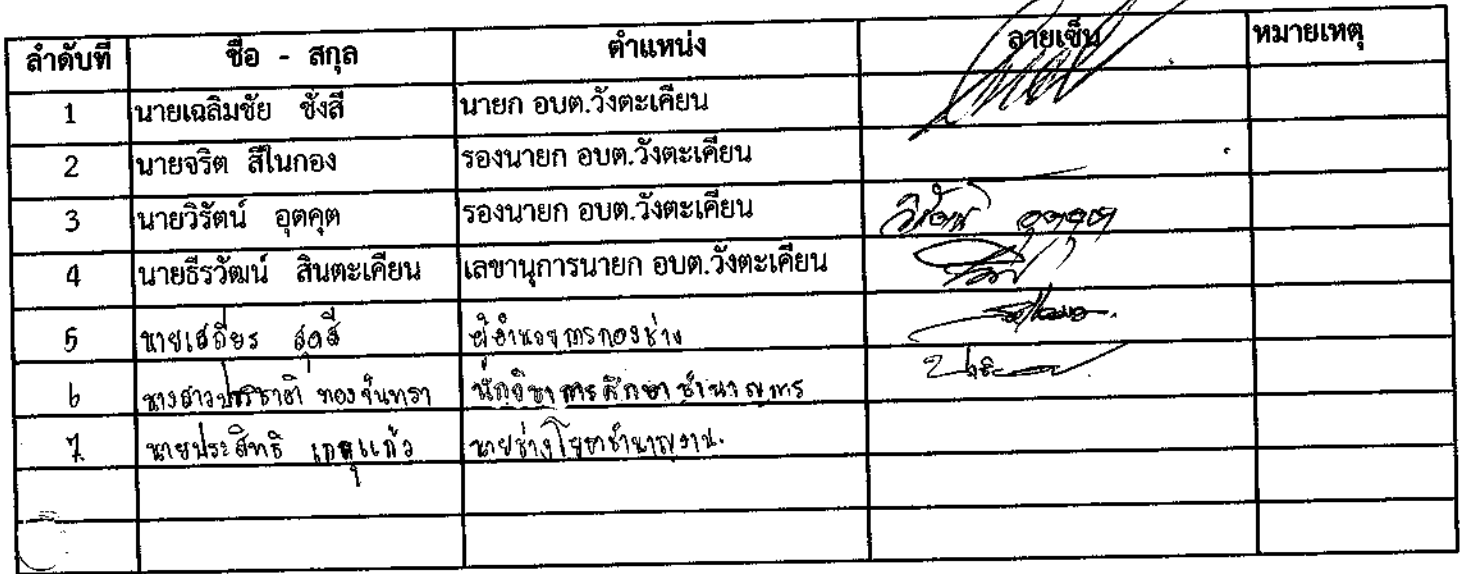 ลำดับที่ ชื่อ - สกุล ตำแหน่ง ลายเซ็น หมายเหตุ
1 นายเฉลิมชัย ชั่งสี นายก อบต.วังตะเคียน
2 นายจริต สีในกอง รองนายก อบต.วังตะเคียน
3 นายวิรัตน์ อุตคุต รองนายก อบต.วังตะเคียน วิรัตน์ อุตคุต
4 นายธีรวัฒน์ สินตะเคียน เลขานุการนายก อบต.วังตะเคียน
5 นายเสถียร สุดสี ผู้อำนวยการกองช่าง
6 นางสาวปาริชาติ ทองจันทรา นักวิชาการศึกษาชำนาญการ
7 นายประสิทธิ เกตุแก้ว นายช่างโยธาชำนาญงาน.